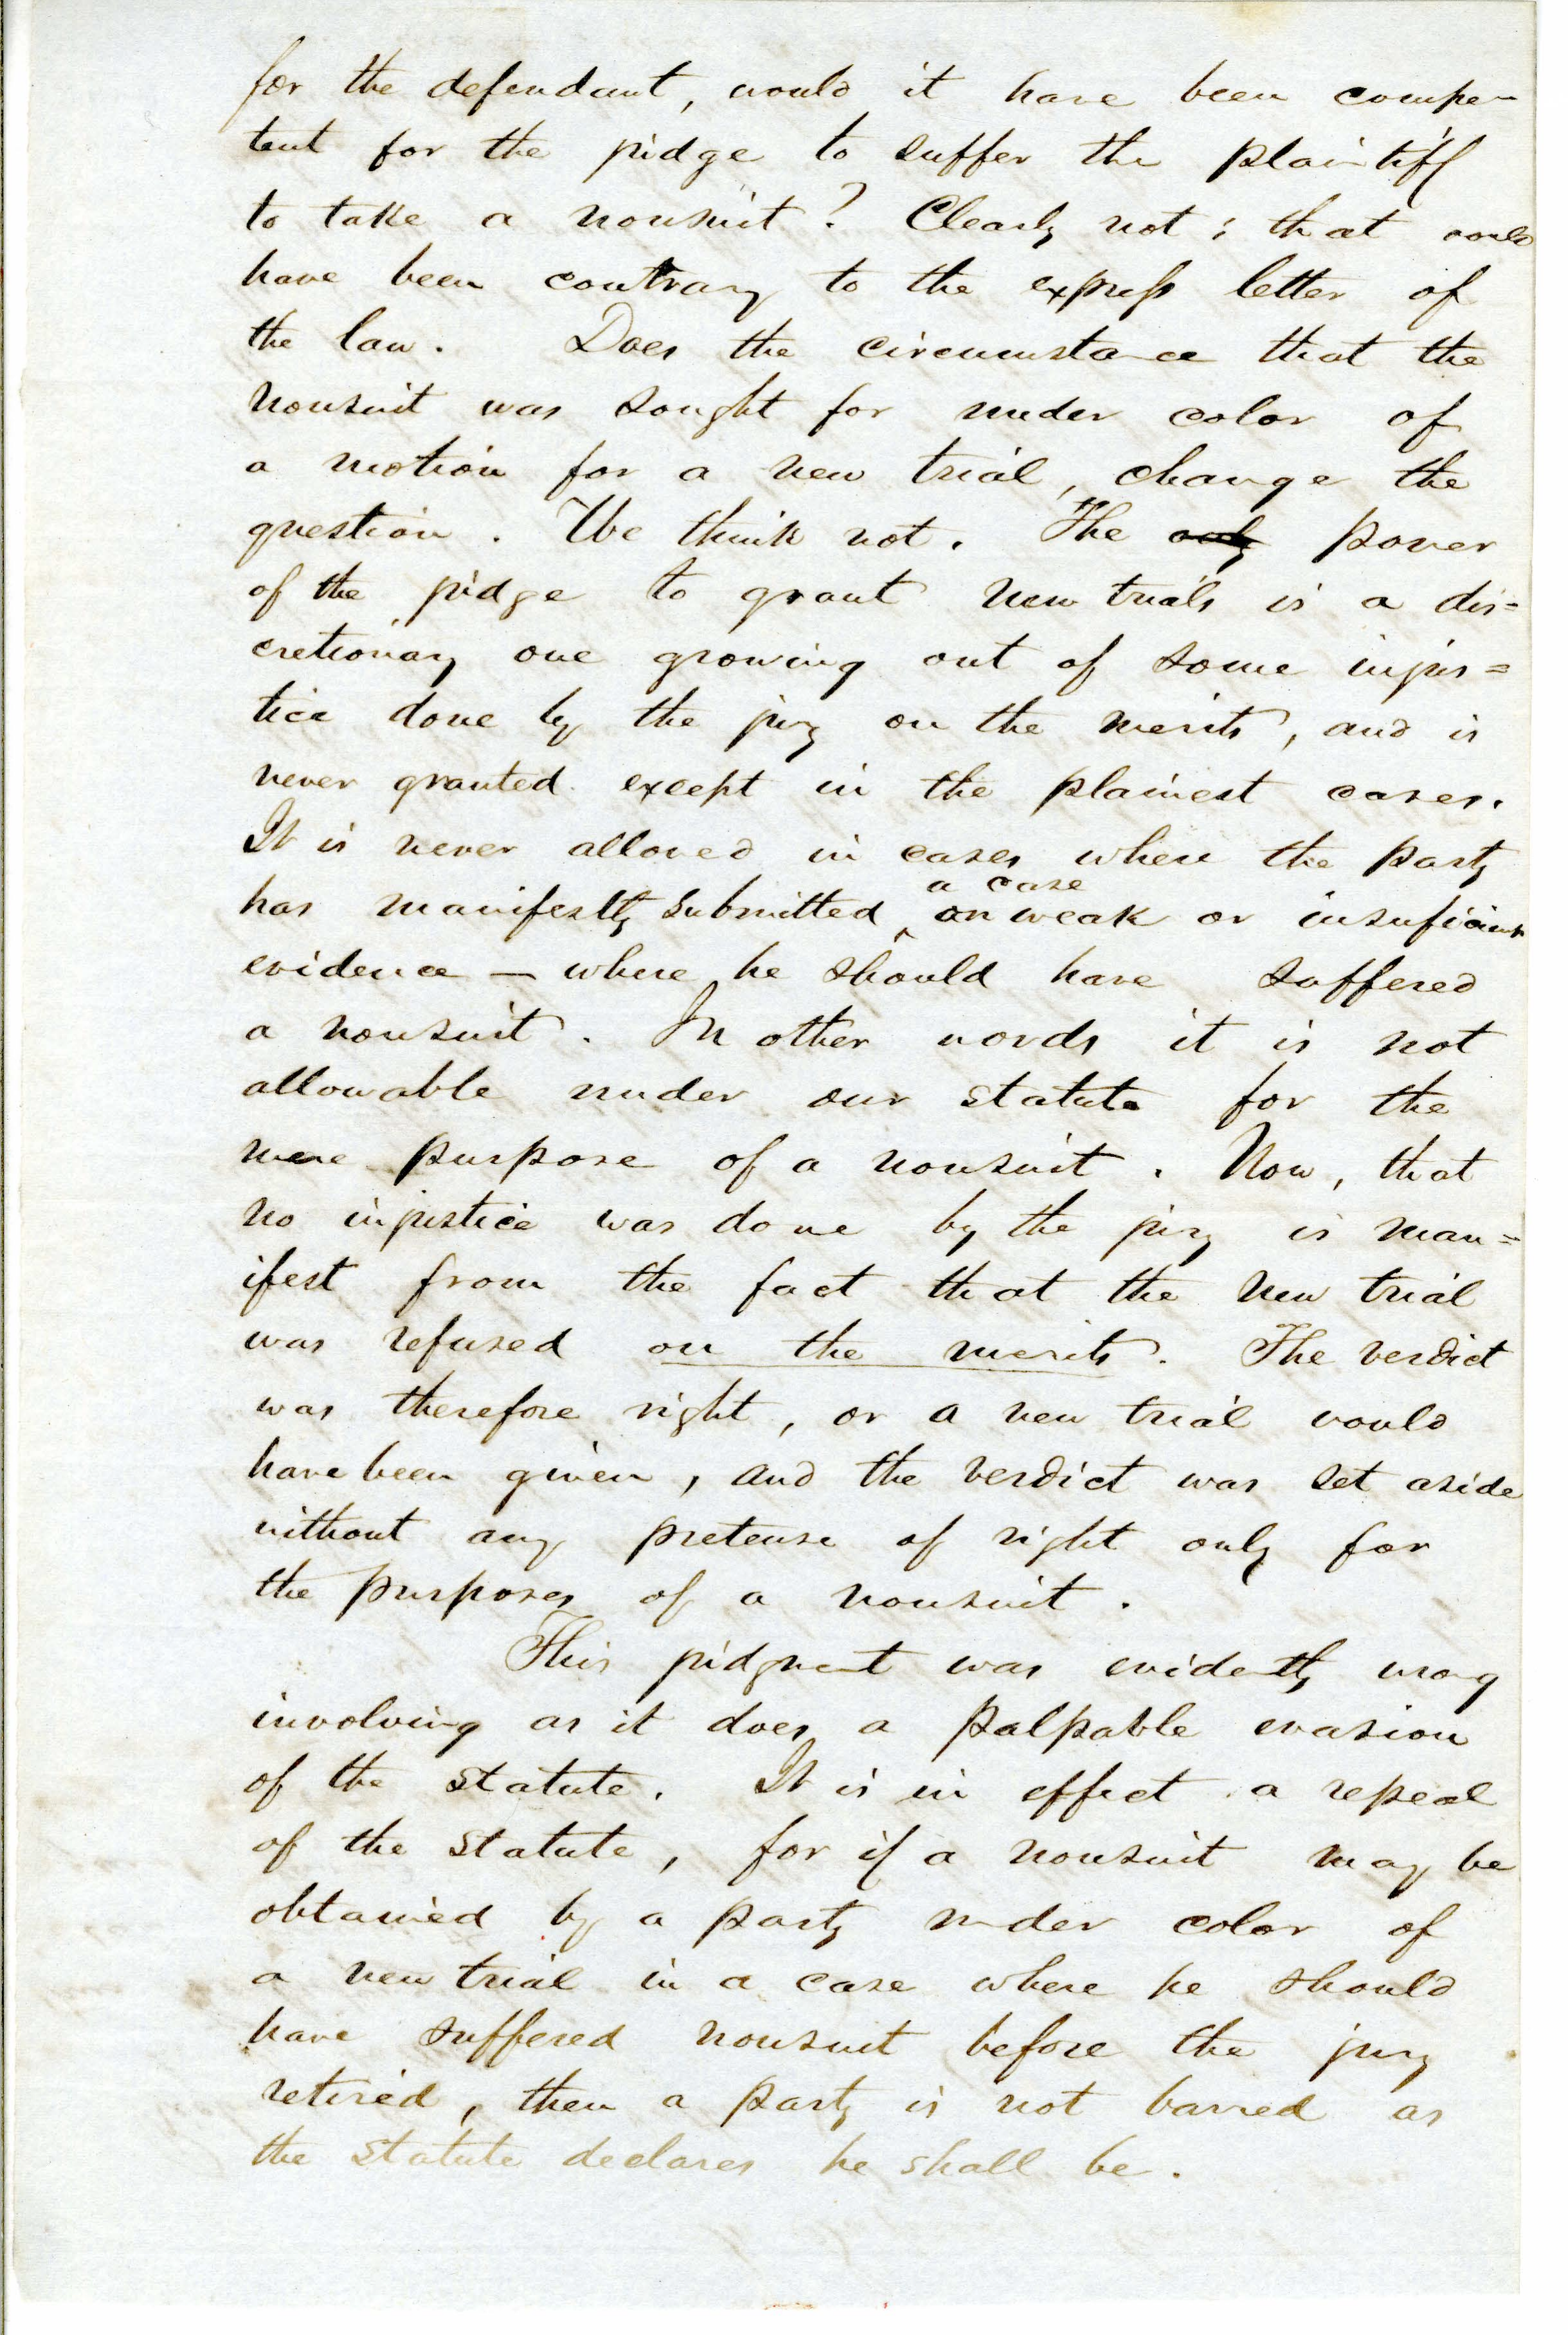 for the defendant, would it have been compe-
tent for the judge to suffer the plaintiff
to take a nonsuit? Clearly not; that would
have been contrary to the express letter of
the law. Does the circumstance that the
nonsuit was sought for under color of
a motion for a new trial, change the
question. We think not. The only power
of the judge to grant new trials is a dis=
cretionary one growing out of some injus=
tice done by the jury on the merits, and is
never granted except in the plainest cases.
It is never allowed in cases where the party
a case
has manifestly submitted on weak or insuficient
evidence — where he should have suffered
a nonsuit. In other words it is not
allowable under our statute for the
mere purpose of a nonsuit. Now, that
no injustice was done by the jury is man=
ifest from the fact that the new trial
was refused on the merits. The verdict
was therefore right, or a new trial would
have been given, and the verdict was set aside
without any pretense of right only for
the purposes of a nonsuit.
This judgment was evidently wrong
involving as it does a palpable evasion
of the statute. It is in effect a repeal
of the statute, for if a nonsuit may be
obtained by a party under color of
a new trial in a case where he should
have suffered nonsuit before the jury
retired, then a party is not barred as
the statute declares he shall be.